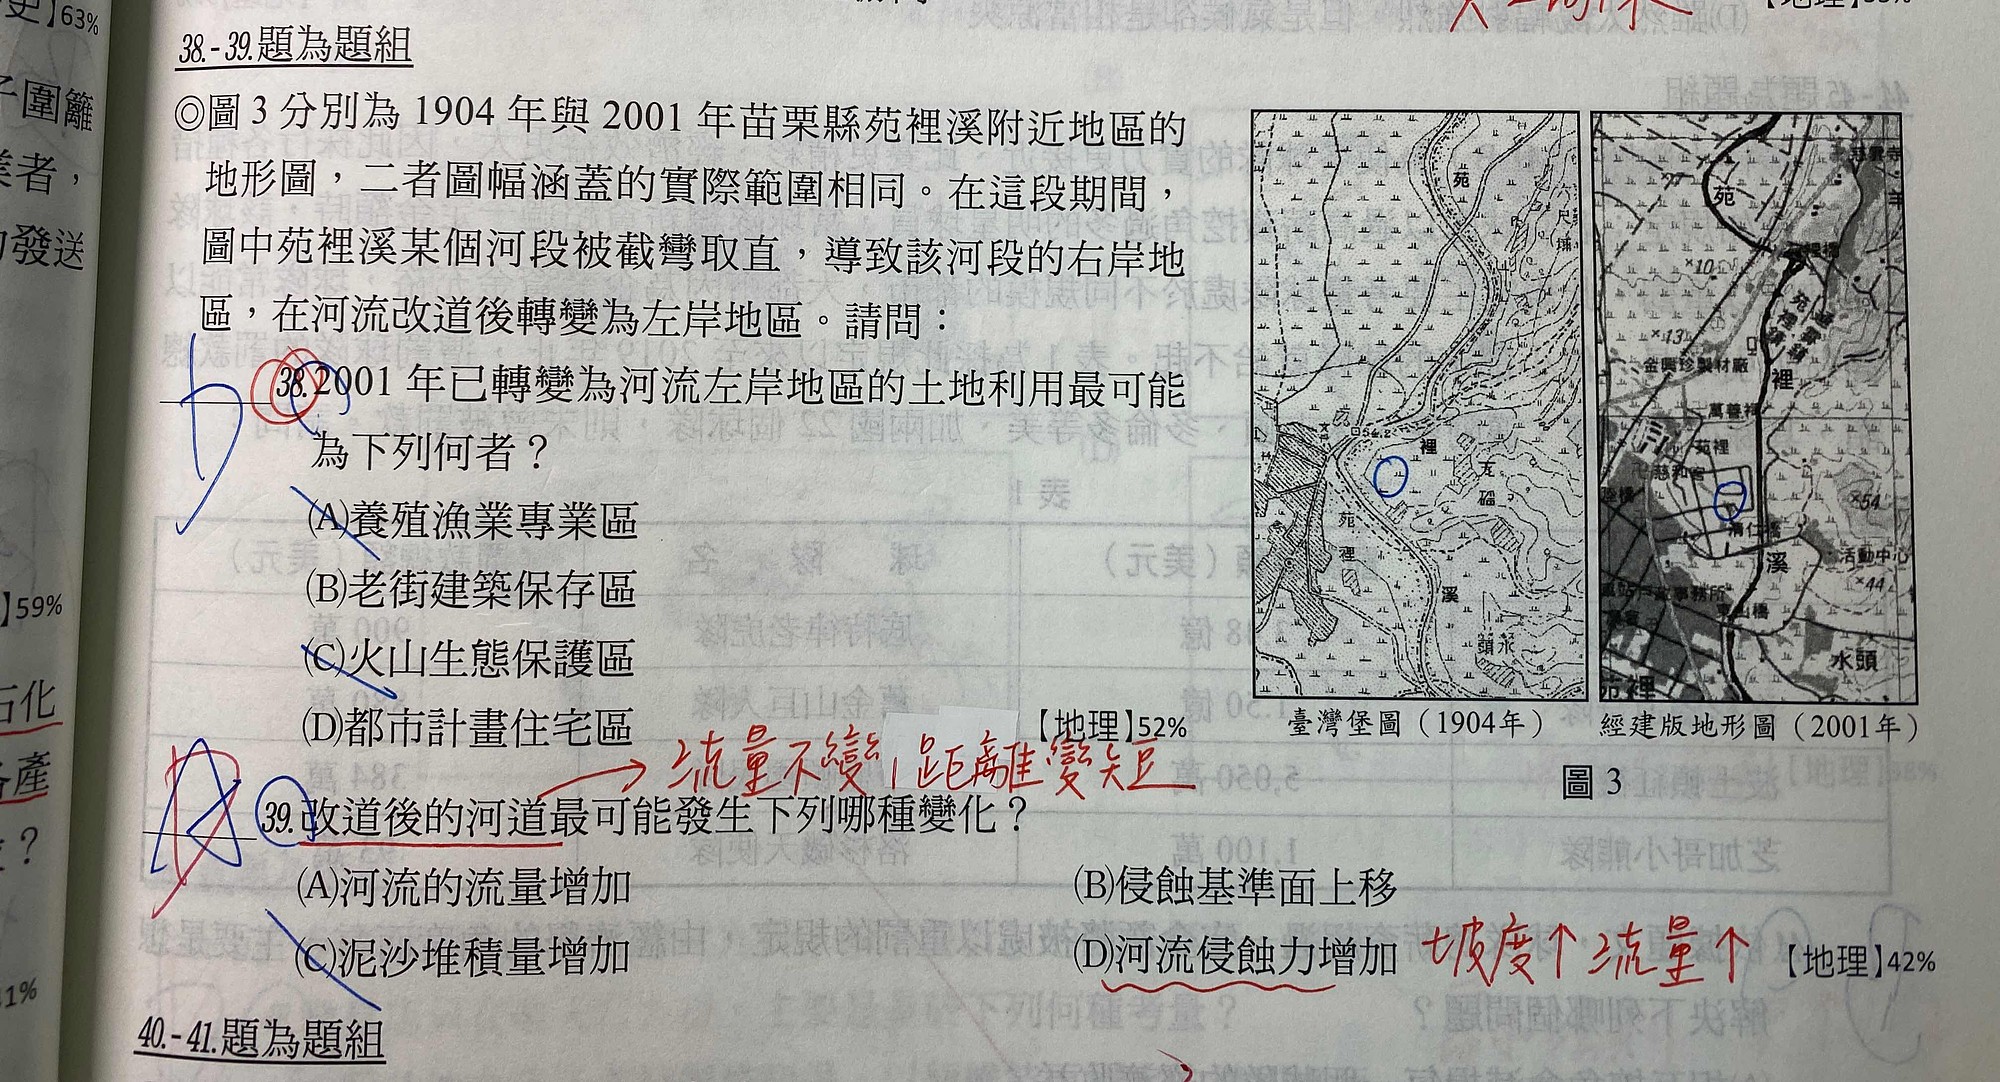 史】63%
38.-39.題為題組
◎圖 3 分別為 1904 年與 2001 年苗栗縣苑裡溪附近地區的
地形圖，二者圖幅涵蓋的實際範圍相同。在這段期間，
圖中苑裡溪某個河段被截彎取直，導致該河段的右岸地
區，在河流改道後轉變為左岸地區。請問：
38.2001 年已轉變為河流左岸地區的土地利用最可能
為下列何者？
(A)養殖漁業專業區
(B)老街建築保存區
(C)火山生態保護區
(D)都市計畫住宅區
【地理】52%
流量不變，距離變短
39.改道後的河道最可能發生下列哪種變化？
(A)河流的流量增加
(B)侵蝕基準面上移
(C)泥沙堆積量增加
(D)河流侵蝕力增加
坡度↑流量↑
【地理】42%
40.-41.題為題組
苑
裡
苑
裡
溪
水
頭
臺灣堡圖（1904年）
苑
×10
×13
金興珍製材廠
裡
萬善祠
苑裡
卍慈和宮
×54
溪
活動中心
×44
東山橋
水頭
苑裡
經建版地形圖（2001年）
圖 3
子圍籬
業者，
的發送
】59%
石化
各產
？
41%